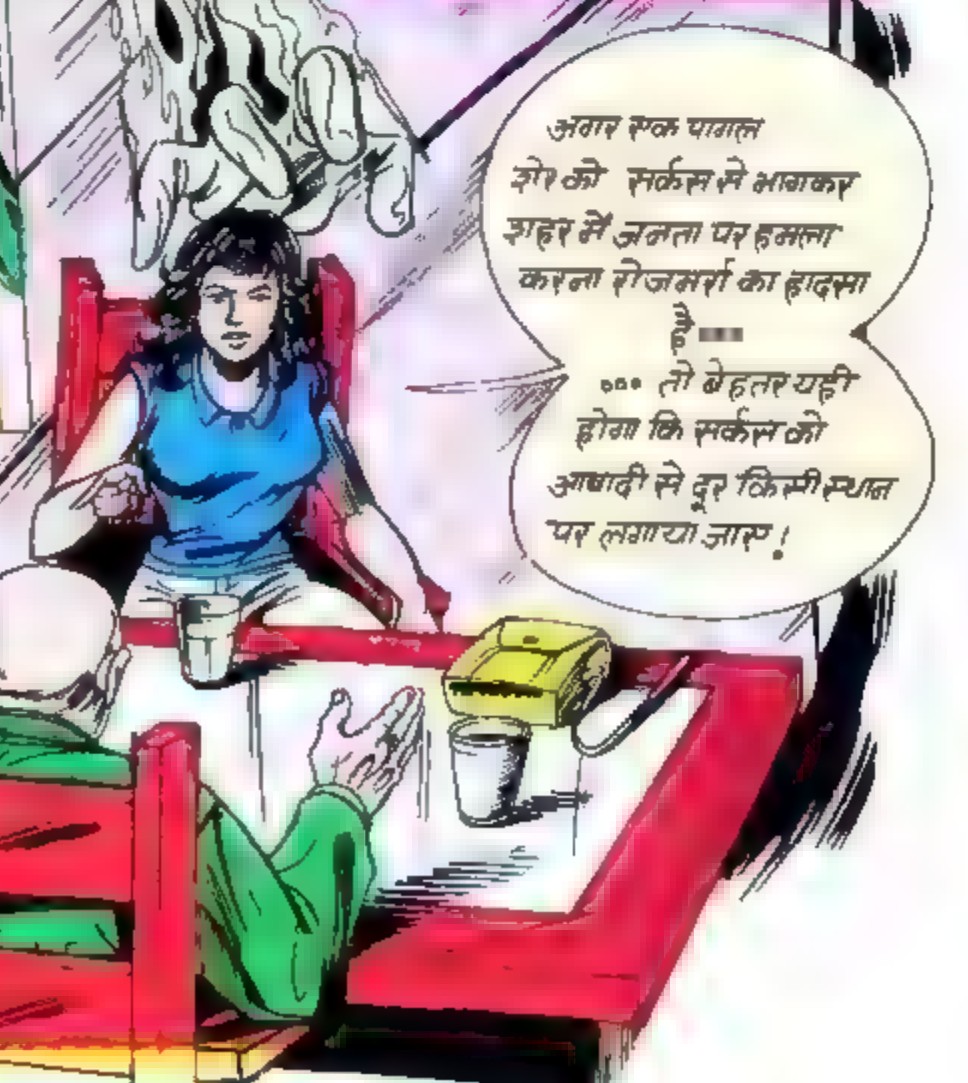 अगर एक पागल
शेर को सर्कस से भागकर
शहर में जनता पर हमला
करना रोजमर्रा का हादसा
है ---
... तो बेहतर यही
होगा कि सर्कस को
आबादी से दूर किसी स्थान
पर लगाया जाए!